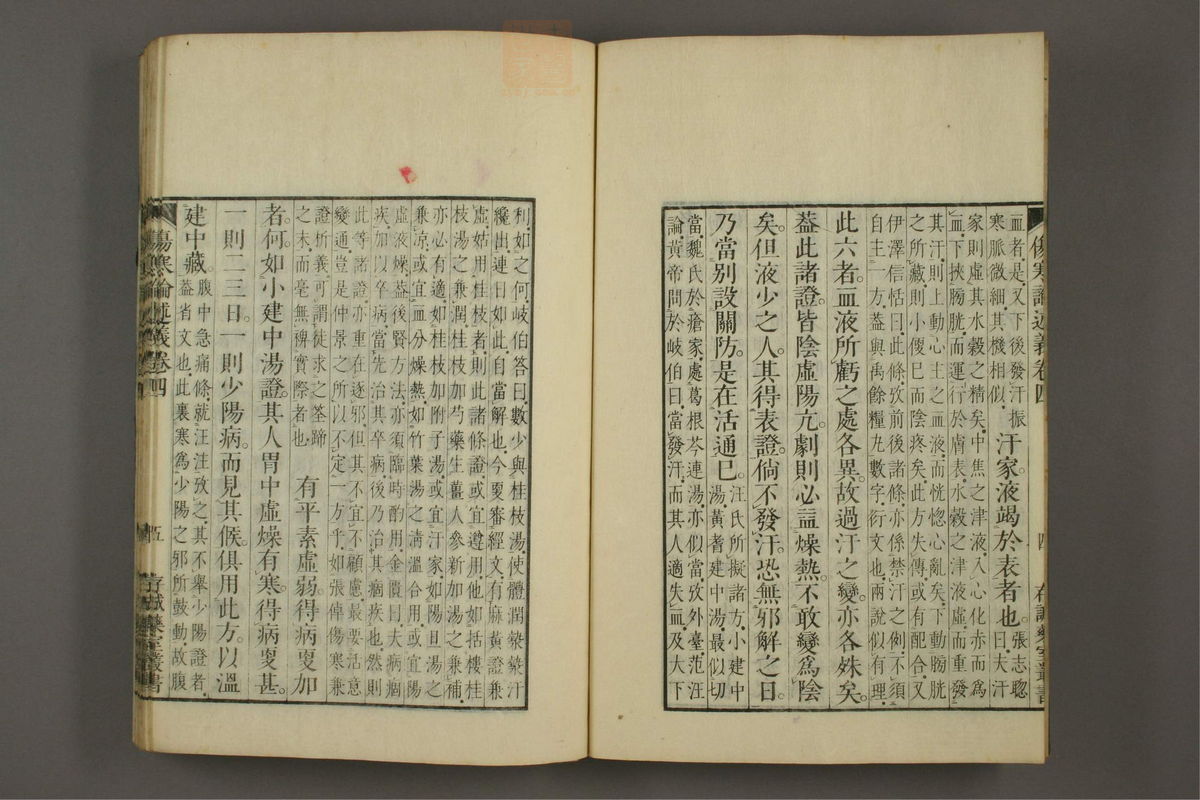 傷寒論述義卷四 四 存誠藥室叢書
血者是又下後發汗振
寒脈微細其機相似
汗家液竭於表者也。
張志聰
曰夫汗
家則虛其水穀之精矣中焦之津液入心化赤而爲
血下挾膀胱而運行於膚表水穀之津液虛而重發
其汗則上動心主之血液而恍惚心亂矣下動膀胱
之所藏則小便已而陰疼矣此方失傳或有配合又
伊澤信恬曰此條攷前後諸條亦係禁汗之例不須
自主一方蓋與禹餘糧丸數字衍文也兩說似有理
此六者。血液所虧之處各異。故過汗之變亦各殊矣。
蓋此諸證。皆陰虛陽亢。劇則必益燥熱。不敢變爲陰
矣。但液少之人。其得表證。倘不發汗。恐無邪解之日。
乃當別設關防。是在活通已。
汪氏所擬諸方小建中
湯黃耆建中湯最似切
當魏氏於瘡家處葛根芩連湯亦似當攷外臺范汪
論黃帝問於岐伯曰當發汗而其人適失血及大下
利如之何岐伯答曰數少與桂枝湯使體潤漐漐汗
纔出連日如此自當解也今更審經文有麻黃證兼
虛姑用桂枝者則此諸條證或宜遵用他如栝樓桂
枝湯之兼潤桂枝加芍藥生薑人參新加湯之兼補
亦必有適如桂枝加附子湯或宜汗家如陽旦湯之
兼涼或宜血分燥熱如竹葉湯之清溫合用或宜陽
虛液燥蓋後賢方法亦須臨時酌用金匱曰夫病痼
疾加以卒病當先治其卒病後乃治其痼疾也然則
此等諸證亦重在逐邪但其不宜不顧慮最要活意
變通豈是仲景之所以不定一方乎如張倬傷寒兼
證析義可謂徒求之筌蹄
之末而毫無裨實際者也
有平素虛弱。得病更加
者。何。如小建中湯證。其人胃中虛燥有寒。得病更甚。
一則二三日。一則少陽病。而見其候。俱用此方。以溫
建中藏。
腹中急痛條就汪注攷之其不舉少陽證者
蓋省文也此裏寒爲少陽之邪所鼓動故腹
傷寒論述義卷四 五 存誠藥室叢書